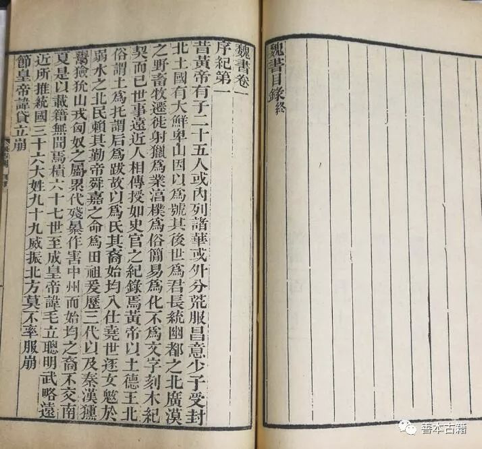 魏書目錄終
魏書卷一
序紀第一
昔黃帝有子二十五人或內列諸華或外分荒服昌意少子受封
北土國有大鮮卑山因以爲號其後世爲君長統幽都之北廣漠
之野畜牧遷徙射獵爲業淳樸爲俗簡易爲化不爲文字刻木紀
契而已世事遠近人相傳授如史官之紀錄焉黃帝以土德王北
俗謂土爲托謂后爲跋故以爲氏其裔始均入仕堯世逐女魃於
弱水之北民賴其勤帝舜嘉之命爲田祖爰歷三代以及秦漢獯
鬻獫狁山戎匈奴之屬累代殘暴作害中州而始均之裔不交南
夏是以載籍無聞焉積六十七世至成皇帝諱毛立聰明武略遠
近所推統國三十六大姓九十九威振北方莫不率服崩
節皇帝諱貸立崩
善本古籍